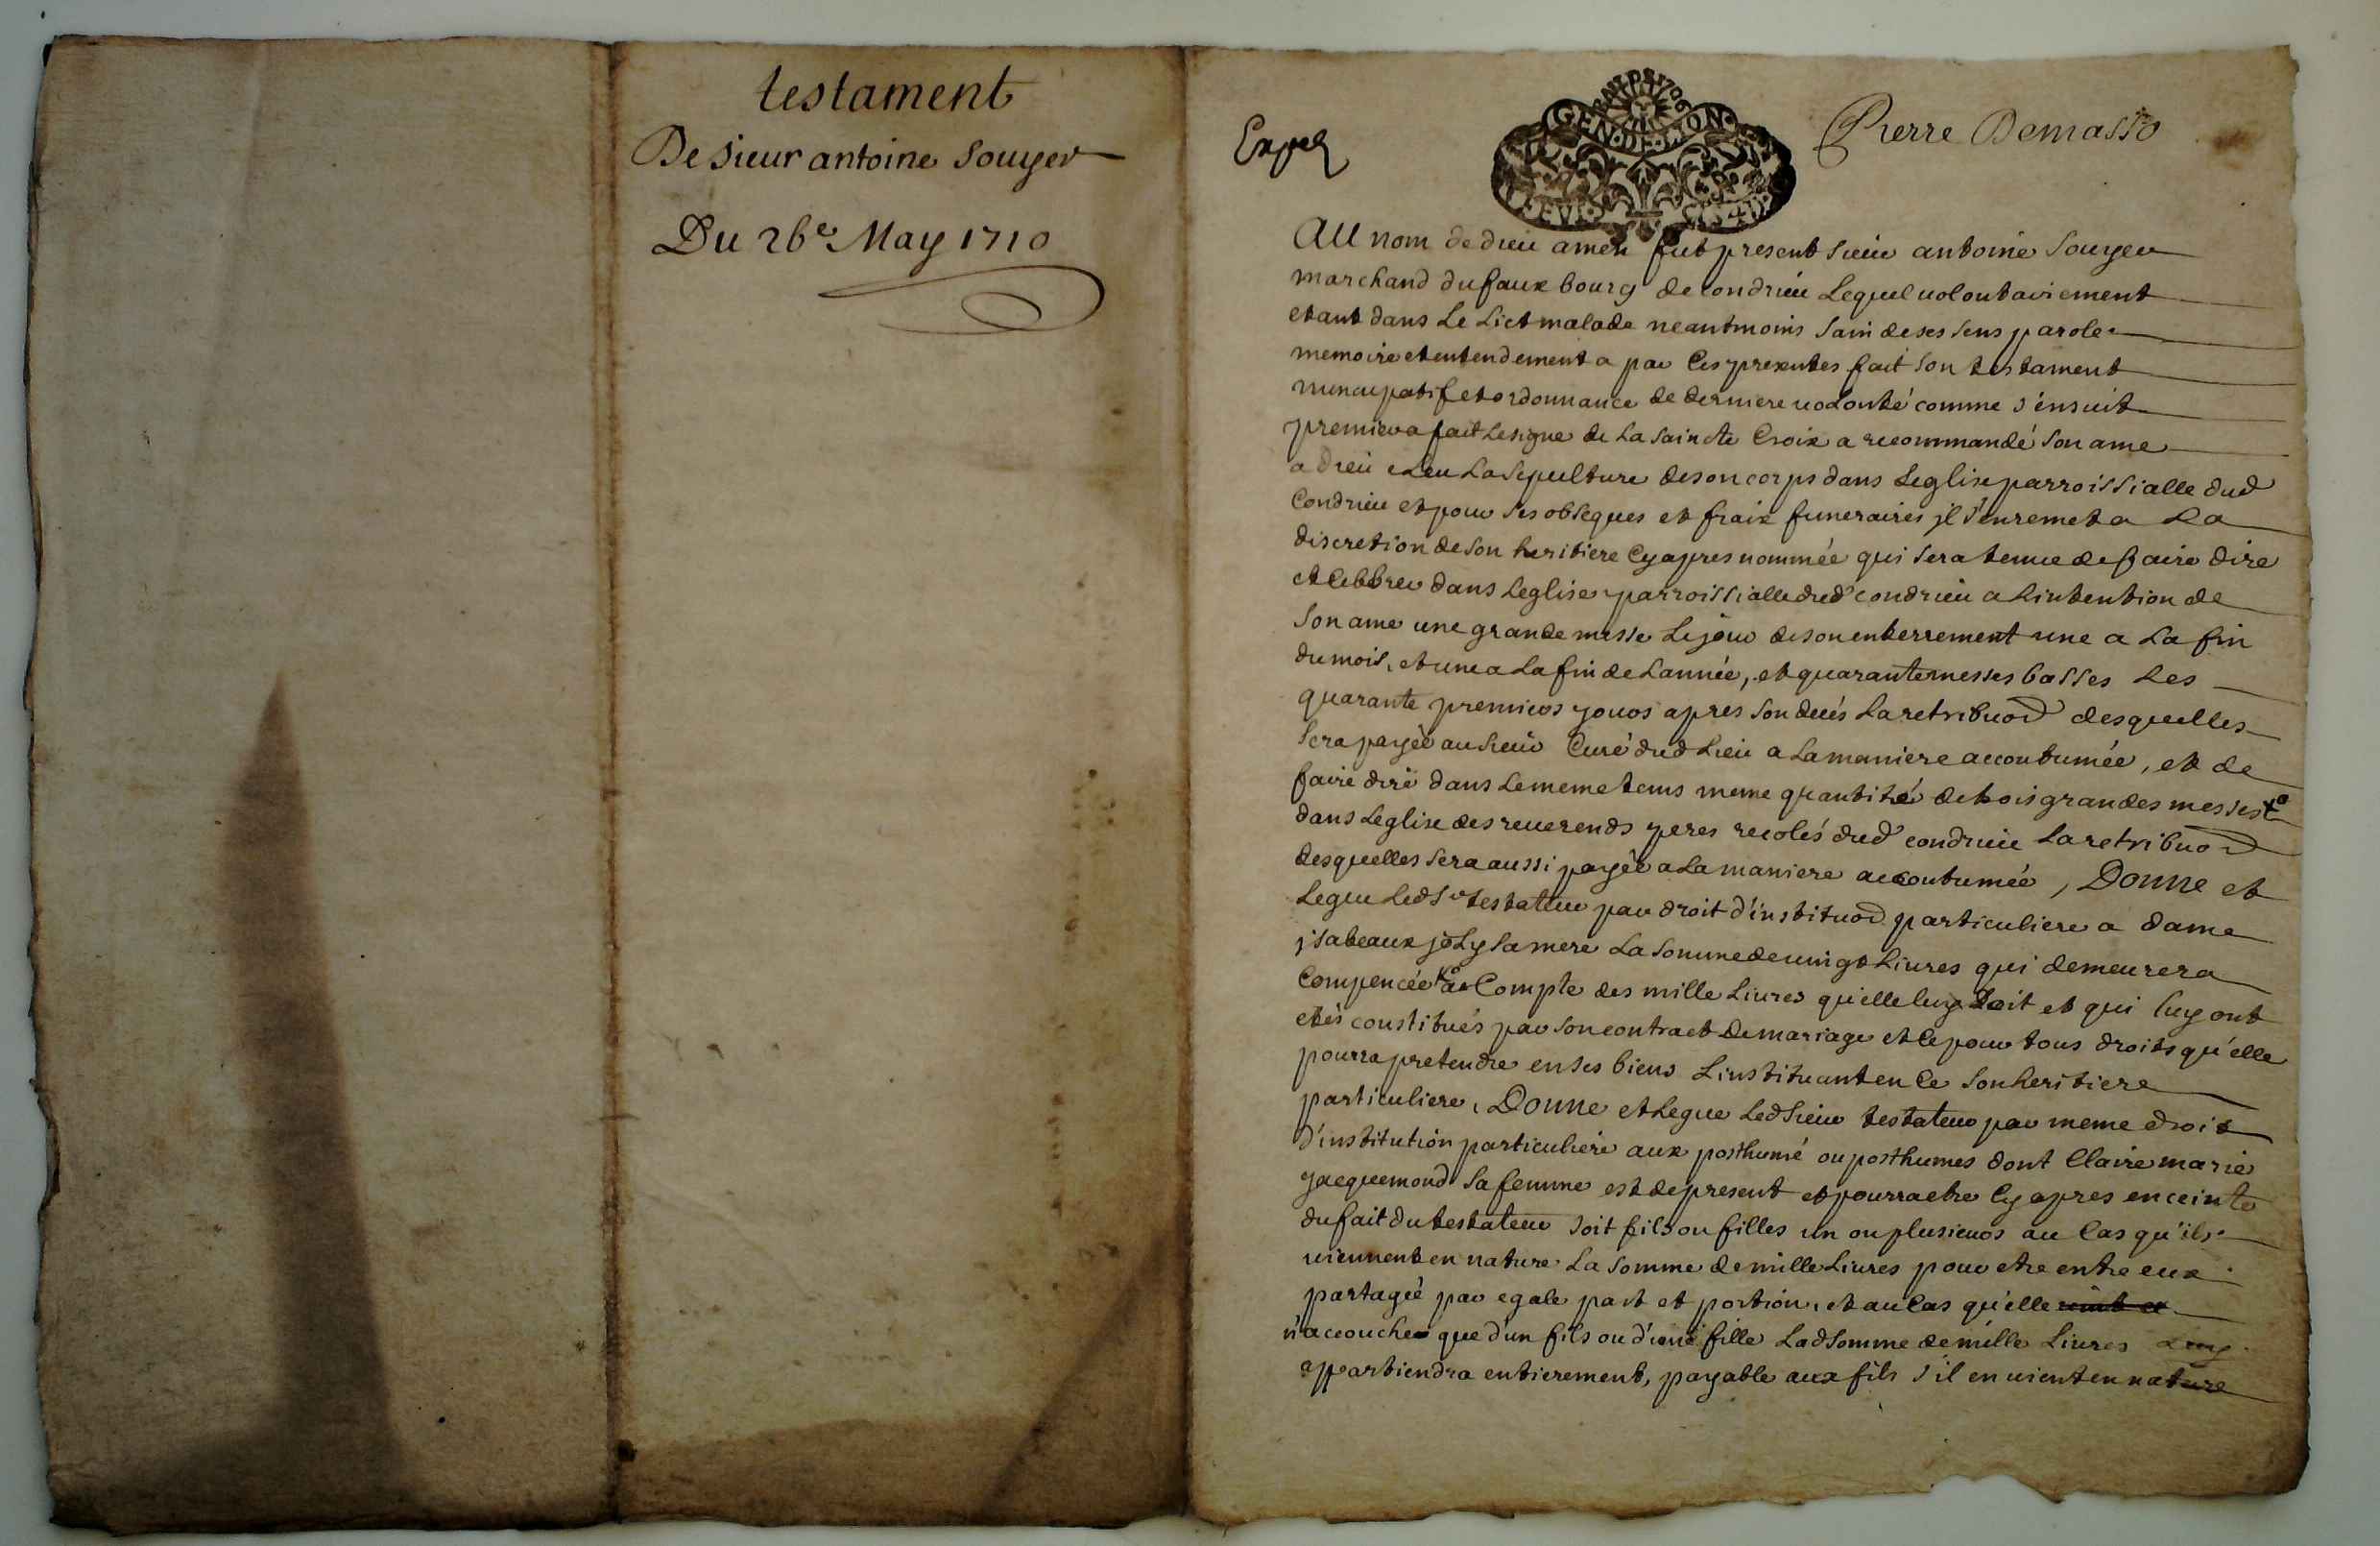 testament
De sieur antoine souyer
Du 26e May 1710
Exped
GEN·DE·LYON
Pierre Demasso
AU nom de dieu amen fut present sieur antoine souyer
marchand du faux bourg de condrieu Lequel uolontairement
etant dans Le Lict malade neantmoins sain de ses sens parole
memoire et entendement a par Ces presentes fait son testament
nuncupatif et ordonnance de derniere uolonté comme s'ensuit
premier a fait Le signe de La saincte Croix a recommandé son ame
a dieu eleu La sepulture de son corps dans Leglise parroissialle dud
Condrieu et pour ses obseques et fraix funeraires jl s'en remet a La
discretion de son heritiere Cy apres nommée qui sera tenue de faire dire
et Celebrer dans Leglise parroissialle dud condrieu a Lintention de
son ame une grande messe Le jour de son enterrement une a La fin
du mois, et une a La fin de L'année, et quarante messes basses Les
quarante premiers jours apres son decés La retribuon desquelles
sera payée au sieur Curé dud Lieu a La maniere accoutumée, et de
faire dire dans Le meme tems meme quantité de trois grandes messes
dans Leglise des reuerends peres recolés dud condrieu La retribuon
desquelles sera aussi payée a La maniere accoutumée, Donne et
Legue Led sr testateur par droit d'instituon particuliere a dame
jsabeaux joly sa mere La somme de uingt Liures qui demeurera
Compencée a Compte des mille Liures qu'elle luy doit et qui luy ont
etés constitués par son contract de mariage et Ce pour tous droits qu'elle
pourra pretendre en ses biens L'instituant en Ce son heritiere
particuliere, Donne et Legue Led sieur testateur par meme droit
d'institution particuliere aux posthume ou posthumes dont Claire marie
jacquemond sa femme est de present et pourra etre Cy apres enceinte
du fait du testateur soit fils ou filles un ou plusieurs au Cas qu'ils
uiennent en nature La somme de mille Liures pour etre entre eux
partagée par egale part et portion, et au Cas qu'elle
n'accouche que d'un fils ou d'une fille Lad somme de mille Liures Luy
appartiendra entierement, payable aux fils s'il en uient en nature